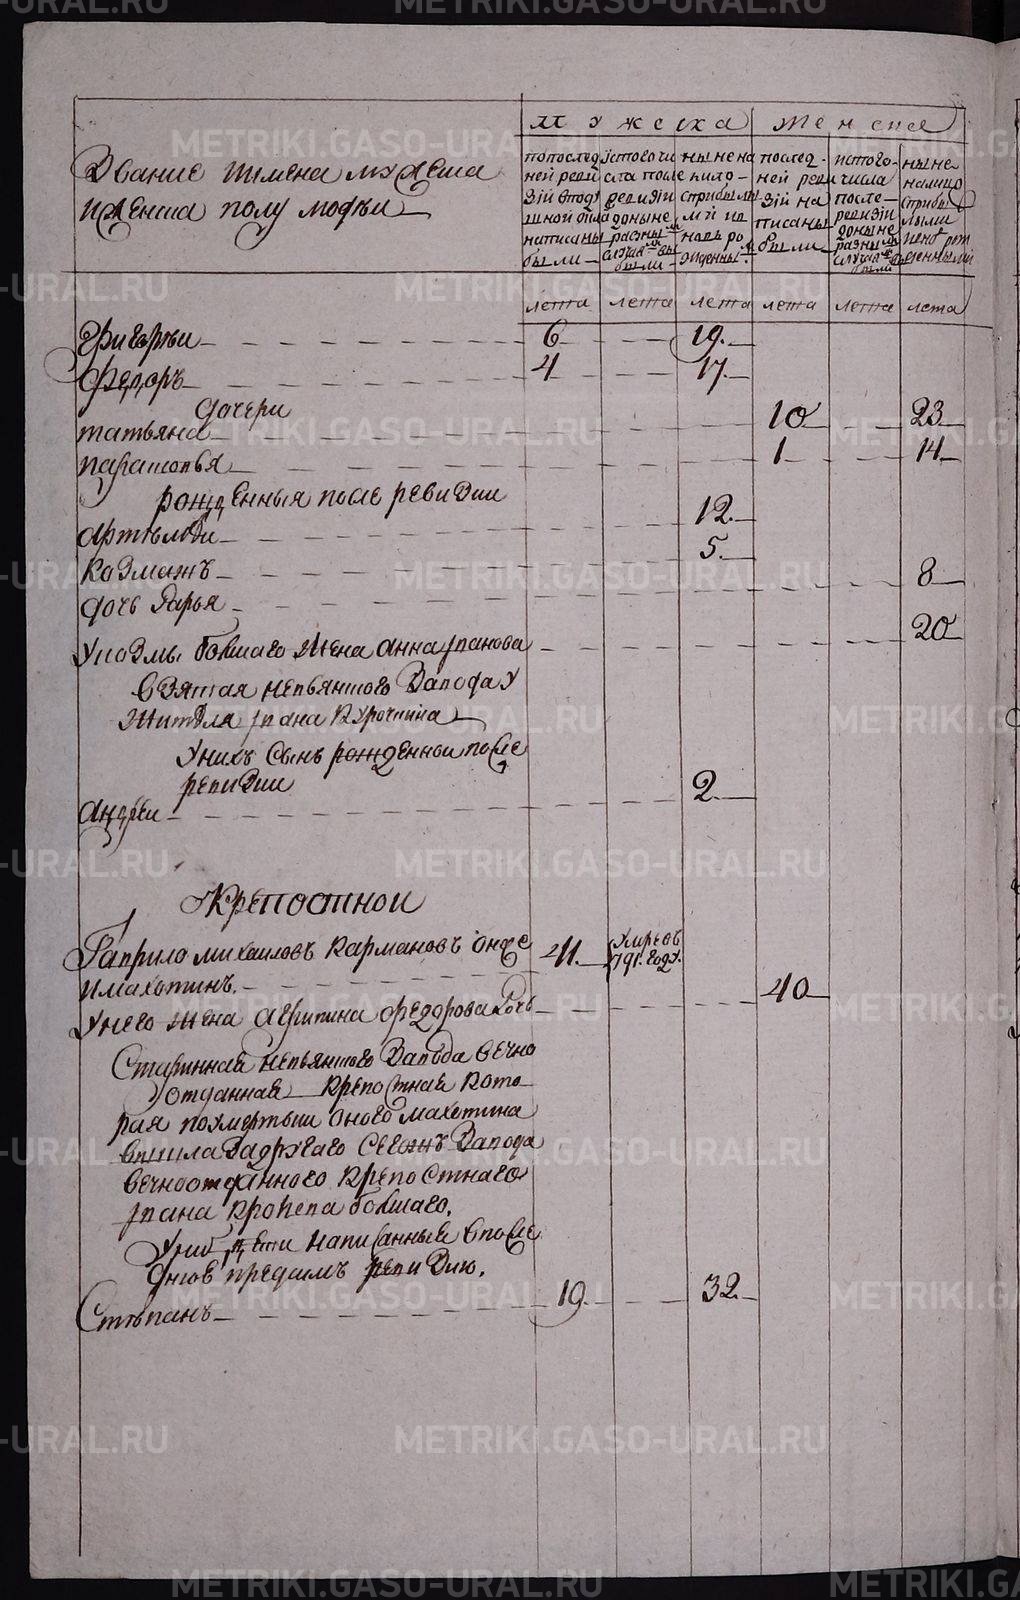 мужеска женска
Звание и имена мужеска
и женска полу людеи
по последней ревизiи в то[й] написаны были
ис того числа после ревизiи до ныне разными случаи выбыли
ныне на лицо с прибылыми и вновь рожденными
последней ревизiи написаны были
ис того числа после ревизiи до ныне разными случаи выбыли
ныне на лицо с прибылыми и внов рожденными
лета лета лета лета лета лета
Григореи 6 19.
Федоръ 4 17.
дочери
татьяна 10 23
парасковья 1 14
рожденныя после ревизии
артемеи 12.
козмажъ 5.
дочь дарья 8
У козмы болшаго жена анна иванова 20
взятая невьянского завода у
жителя ивана курочкина
У нихъ сынъ рожденнои после
ревизии
андреи 2
Крепостнои
Гаврило михаиловъ кармановъ он же 41. Умре въ 791. году.
и махотинъ.
У него жена агрипина федорова дочь 40
Старинная невьянского завода вечно
отданная крепостная кото
рая по смертьи оного махотина
вышла за другаго сегожъ завода
вечно отданного крепостнаго
ивана кропева болшаго.
У них дети написанныя в после
днюю пред симъ ревизию.
Степанъ 19. 32.
METRIKI.GASO-URAL.RU